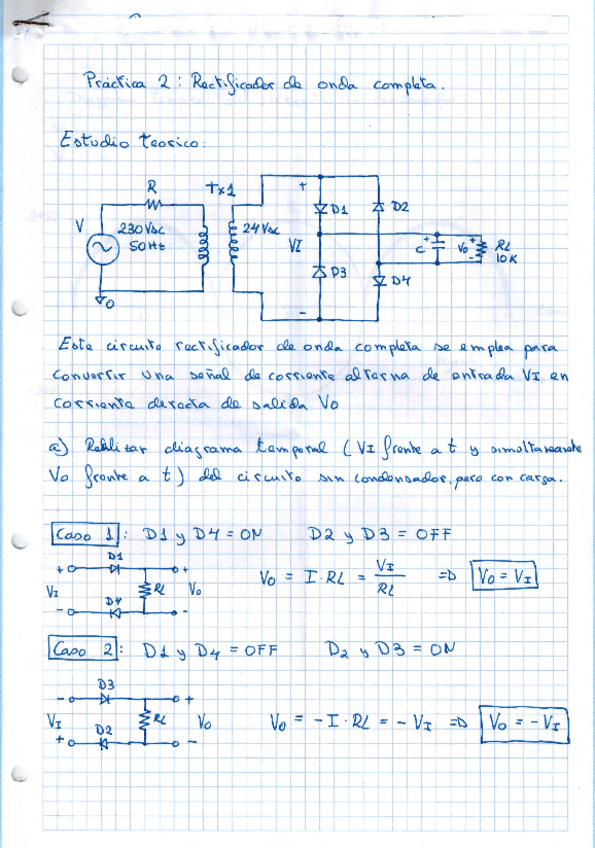 Práctica 2: Rectificador de onda completa.
Estudio teorico:
R
Tx1
+
D1
D2
V
230Vac
50Hz
24Vac
VI
C
+
Vo
+
-
RL
10K
D3
D4
0
-
Este circuito rectificador de onda completa se emplea para
convertir una señal de corriente alterna de entrada VI en
corriente directa de salida Vo
a) Realizar diagrama temporal (VI frente a t y simultaneamente
Vo frente a t) del circuito sin condensador, pero con carga.
Caso 1: D1 y D4 = ON D2 y D3 = OFF
D1
+ +
VI RL Vo
D4
- -
Vo = I·RL = VI/RL => Vo = VI
Caso 2: D1 y D4 = OFF D2 y D3 = ON
D3
- +
VI RL Vo
D2
+ -
Vo = -I·RL = -VI => Vo = -VI